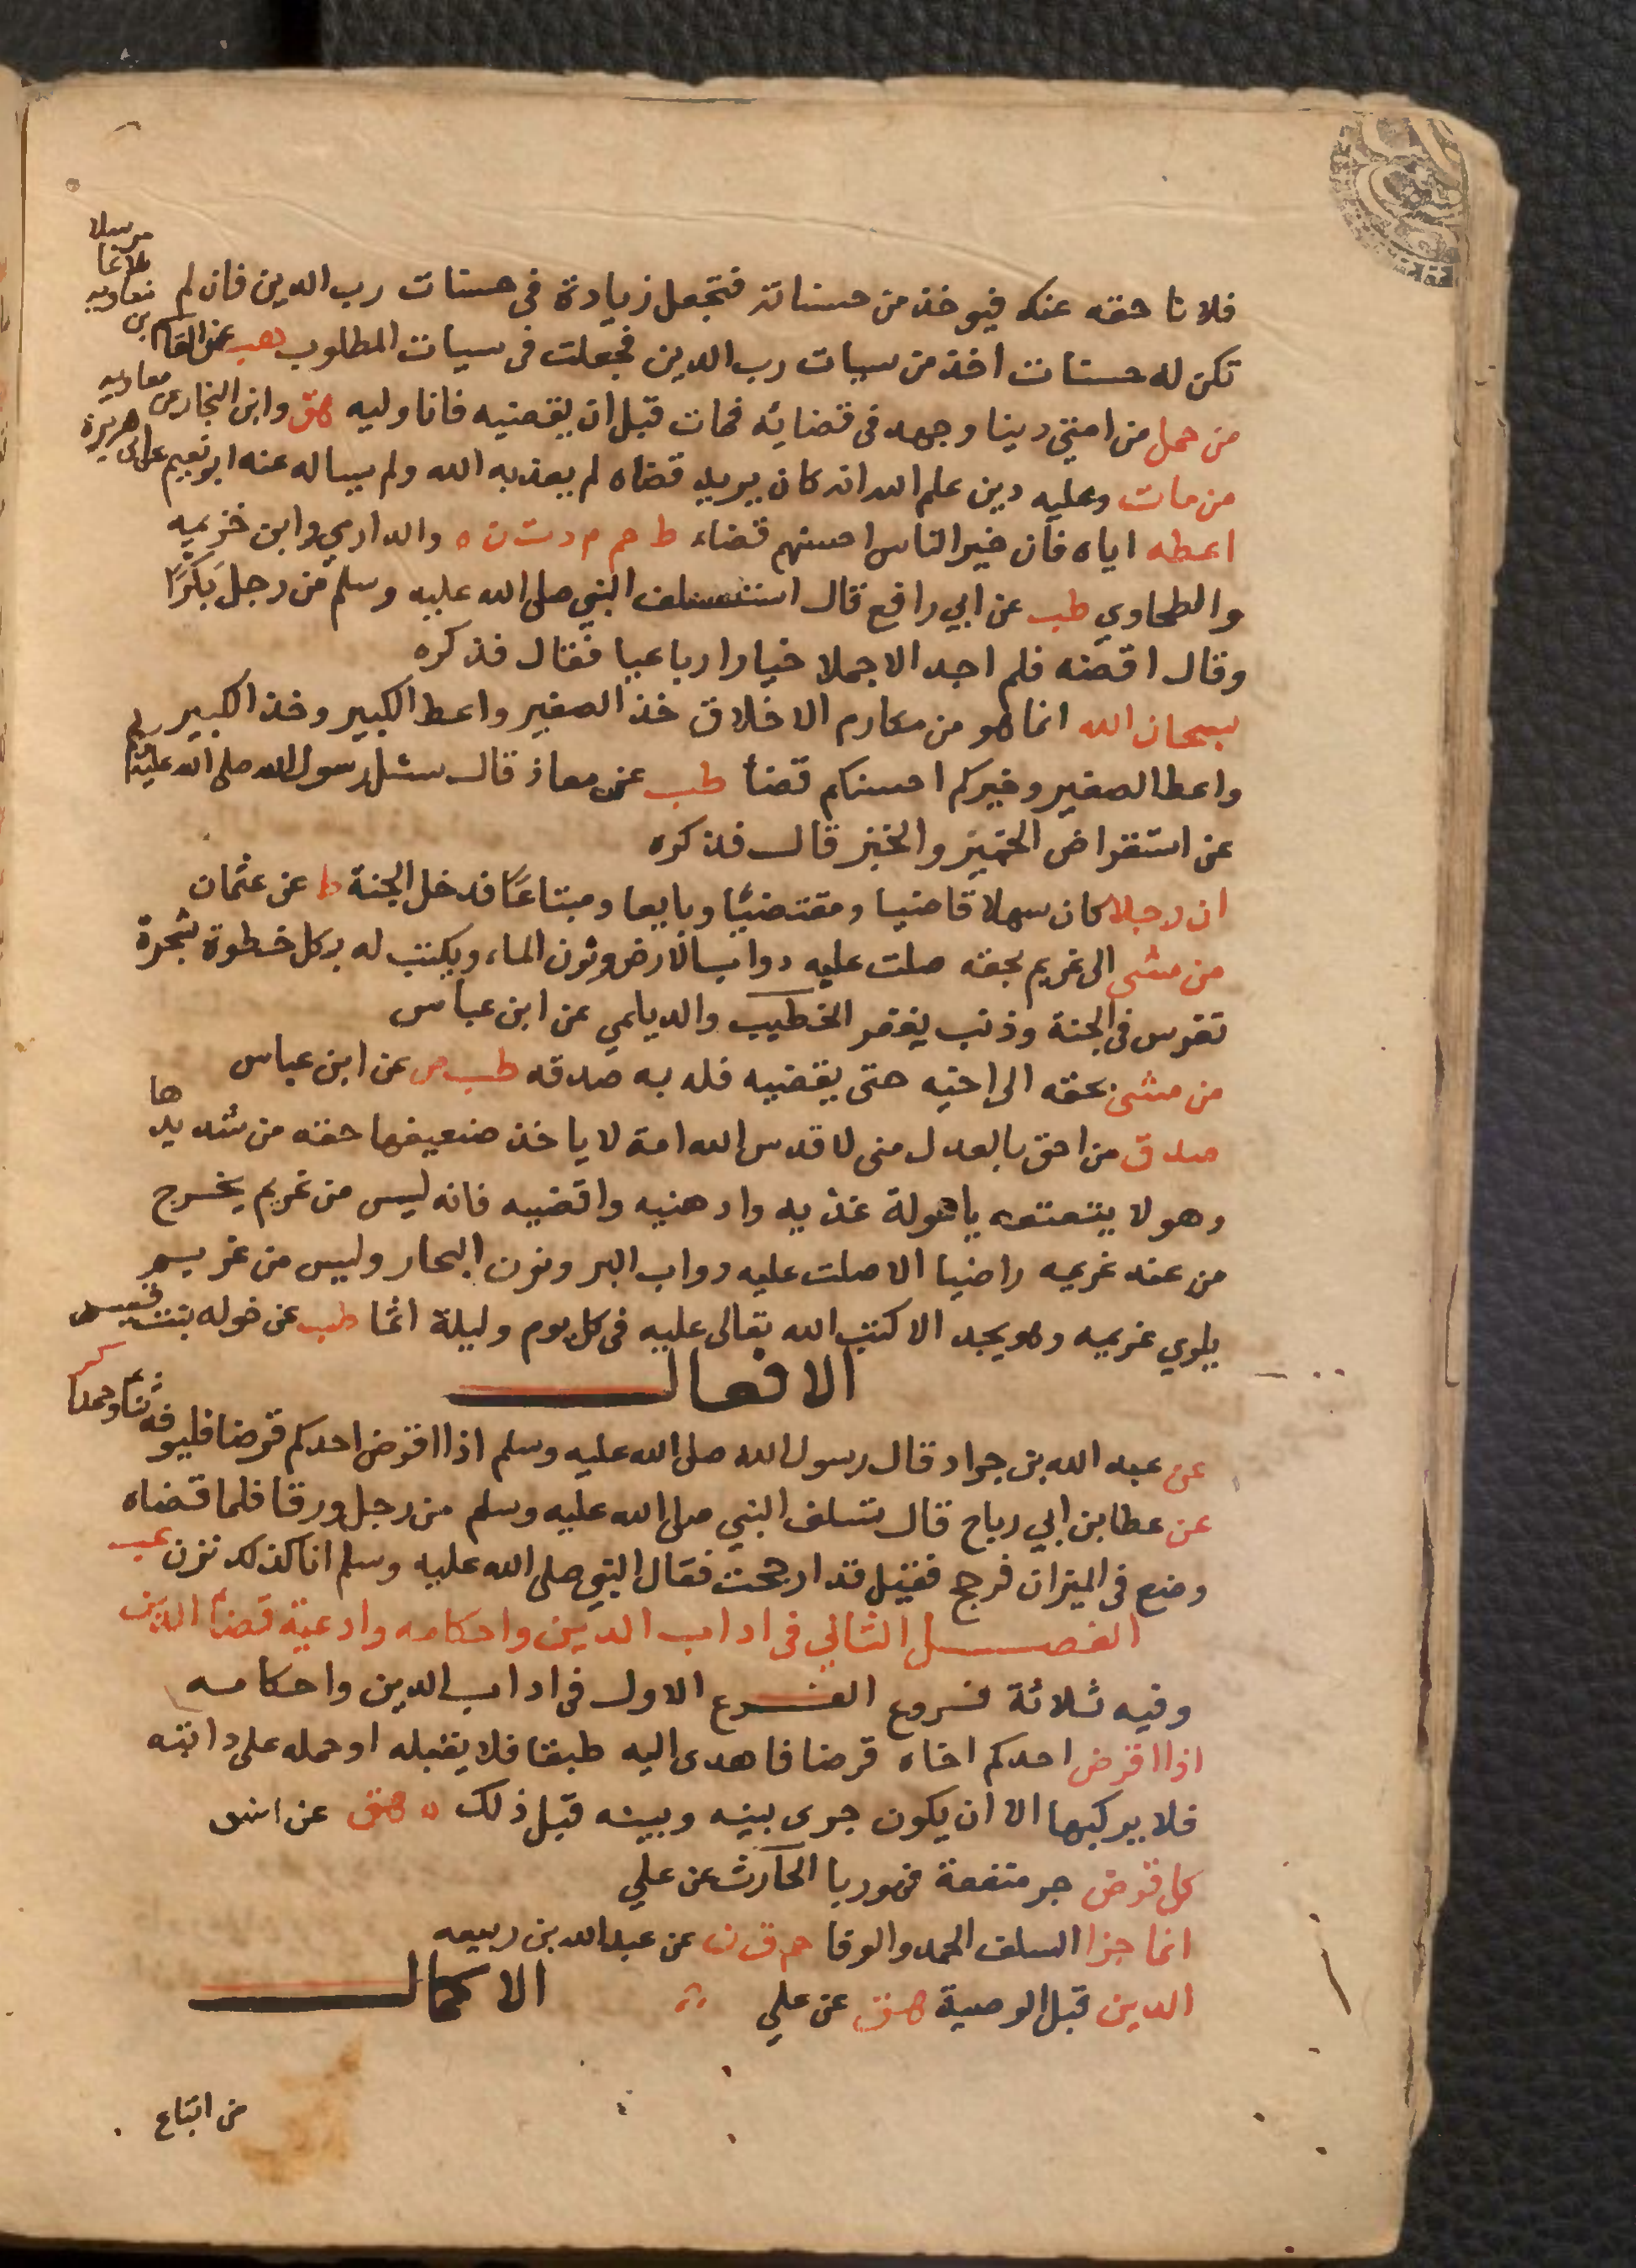 فلانا حقه عنك فيوخذ من حسناته فتجعل زيادة في حسنات رب الدين فان لم
تكن له حسنات اخذ من سيات رب الدين فجعلت في سيات المطلوب هب عن القاسم بن
معاويه
بلاغا
مرسلا
من حمل من امتي دينا وجهد في قضايه فمات قبل ان يقضيه فانا وليه هق وابن النجار عن
من مات وعليه دين علم الله انه كان يريد قضاه لم يعذبه الله ولم يساله عنه ابو نعيم عن ابي هريرة
اعطه اياه فان خير الناس احسنهم قضاء ط حم م د ت ن ه والدارمي وابن خزيمه
والطحاوي طب عن ابي رافع قال استسلف النبي صلى الله عليه وسلم من رجل بكرًا
وقال اقضه فلم اجد الا جملا خيارا رباعيا فقال فذكره
سبحان الله انما هو من مكارم الاخلاق خذ الصغير واعط الكبير وخذ الكبير
واعط الصغير وخيركم احسنكم قضأ طب عن معاذ قال سئل رسول الله صلى الله عليه
عن استقراض الخمير والخبز قال فذكره
ان رجلا كان سهلا قاضيا ومقتضيًا وبايعا ومبتاعًا فدخل الجنة ط عن عثمان
من مشى الى غريم بحقه صلت عليه دواب الارض ونون الماء ويكتب له بكل خطوة شجرة
تغرس في الجنة وذنب يغفر الخطيب والديلمي عن ابن عباس
من مشى بحقه الى اخيه حتى يقضيه فله به صدقه طب ص عن ابن عباس
صدق من احق بالعدل منى لا قدس الله امة لا ياخذ ضعيفها حقه من شديدها
وهو لا يتعتعه يا خولة غذيه وادهنيه واقضيه فانه ليس من غريم يخرج
من عند غريمه راضيا الا صلت عليه دواب البر ونون البحار وليس من غريم
يلوي غريمه وهو يجد الا كتب الله تعالى عليه في كل يوم وليلة اثما طب عن خوله بنت قيس
الافعال
عن عبد الله بن جراد قال رسول الله صلى الله عليه وسلم اذا اقرض احدكم قرضا فليوفه ثنأ وحمدا كر
عن عطا بن ابي رباح قال تسلف النبي صلى الله عليه وسلم من رجل ورقا فلما قضاه
وضع في الميزان فرجح فقيل قد ارجحت فقال النبي صلى الله عليه وسلم انا كذلك نزن عب
الفصل الثاني في اداب الدين واحكامه وادعية قضاء الدين
وفيه ثلاثة فروع الفرع الاول في اداب الدين واحكامه
اذا اقرض احدكم اخاه قرضا فاهدى اليه طبقا فلا يقبله او حمله على دابته
فلا يركبها الا ان يكون جرى بينه وبينه قبل ذلك ه هق عن انس
كل قرض جر منفعة فهو ربا الحارث عن علي
انما جزا السلف الحمد والوفا حم ن ه عن عبد الله بن ربيعه
الدين قبل الوصية هق عن علي الاكمال
من ابتاع